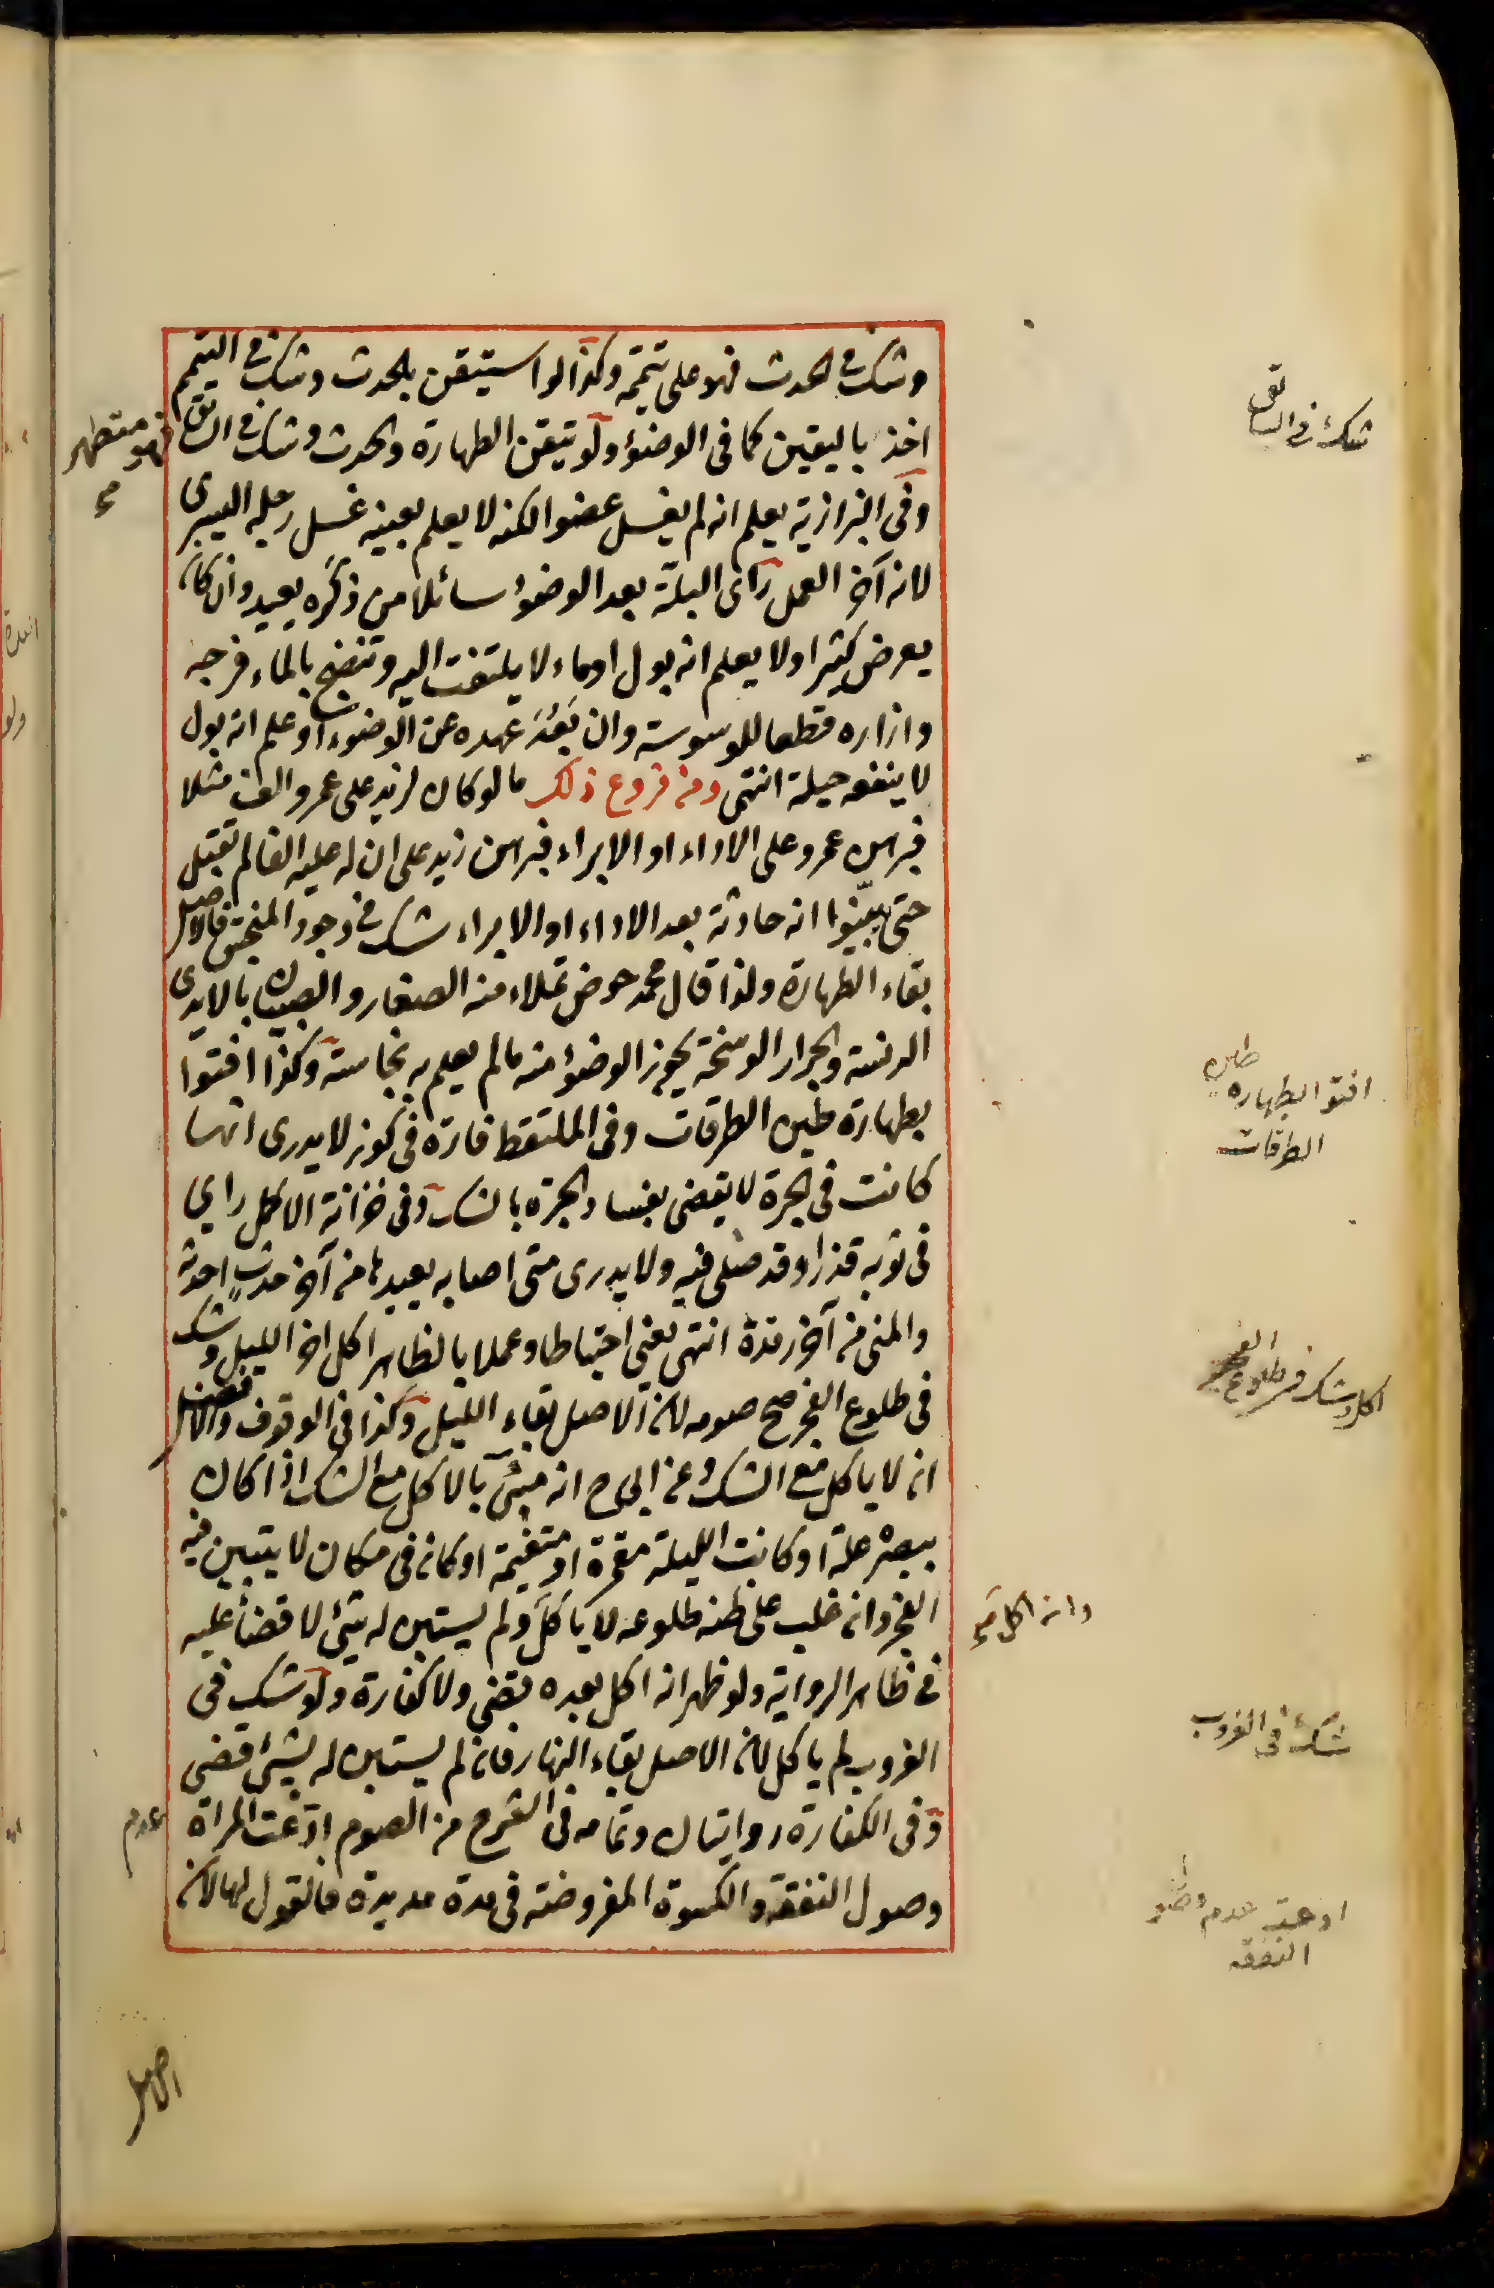 وشك في الحدث فهو على تيممه وكذا لو استيقن بالحدث وشك في التيمم
اخذ باليقين كما في الوضوء ولو تيقن الطهارة والحدث وشك في السابق
فهو متطهر
صح
وفي البزازية يعلم انه لم يغسل عضوا لكنه لا يعلم بعينه غسل رجله اليسرى
لانه آخر العمل رأى البلة بعد الوضوء سائلا من ذكره يعيد وان كان
يعرض كثيرا ولا يعلم انه بول او ماء لا يلتفت اليه وتنضح بالماء فرجه
وازاره قطعا للوسوسة وان بعد عهده عن الوضوء او علم انه بول
لا ينفعه حيلة انتهى ومن فروع ذلك ما لو كان لزيد على عمرو الف مثلا
فبرهن عمرو على الاداء او الابراء فبرهن زيد على ان له عليه الفا لم تقبل
حتى يبينوا انه حادثة بعد الاداء او الابراء شك في وجود المنجس فالاصل
بقاء الطهارة ولذا قال محمد حوض تملاء منه الصغار والصبيان بالايدى
الدنسة والجرار الوسخة يجوز الوضوء منه مالم يعلم به نجاسة وكذا افتوا
بطهارة طين الطرقات وفى الملتقط فارة في كوز لا يدرى انها
كانت في الجرة لا يقضى بفساد الجرة بالشك وفى خزانة الاكمل راى
فى ثوبه قذرا وقد صلى فيه ولا يدرى متى اصابه يعيدها من آخر حدث احدثه
والمنى من آخر رقدة انتهى يعنى احتياطا وعملا بالظاهر اكل اخر الليل وشك
فى طلوع الفجر صح صومه لان الاصل بقاء الليل وكذا في الوقوف والافضل
انه لا ياكل مع الشك وعن ابى ح انه مسئ بالاكل مع الشك اذا كان
ببصره علة او كانت الليلة مقمرة او متغيمة او كان في مكان لا يتبين فيه
الفجر وان غلب على ظنه طلوعه لا ياكل ولم يستبن له شئ لا قضاء عليه
وان اكل صح
فى ظاهر الرواية ولو ظهر انه اكل بعده قضى ولا كفارة ولو شك فى
الغروب لم ياكل لان الاصل بقاء النهار فان لم يستبن له شئ قضى
وفى الكفارة روايتان وتمامه فى الشرح من الصوم ادعت المراة
عدم
وصول النفقة والكسوة المفروضة فى مدة مديدة فالقول لها لان
الاصل
شك في السابق
افتوا بطهاره طين
الطرقات
اكل وشك في طلوع الفجر
شك في الغروب
ادعت عدم وصول
النفقه